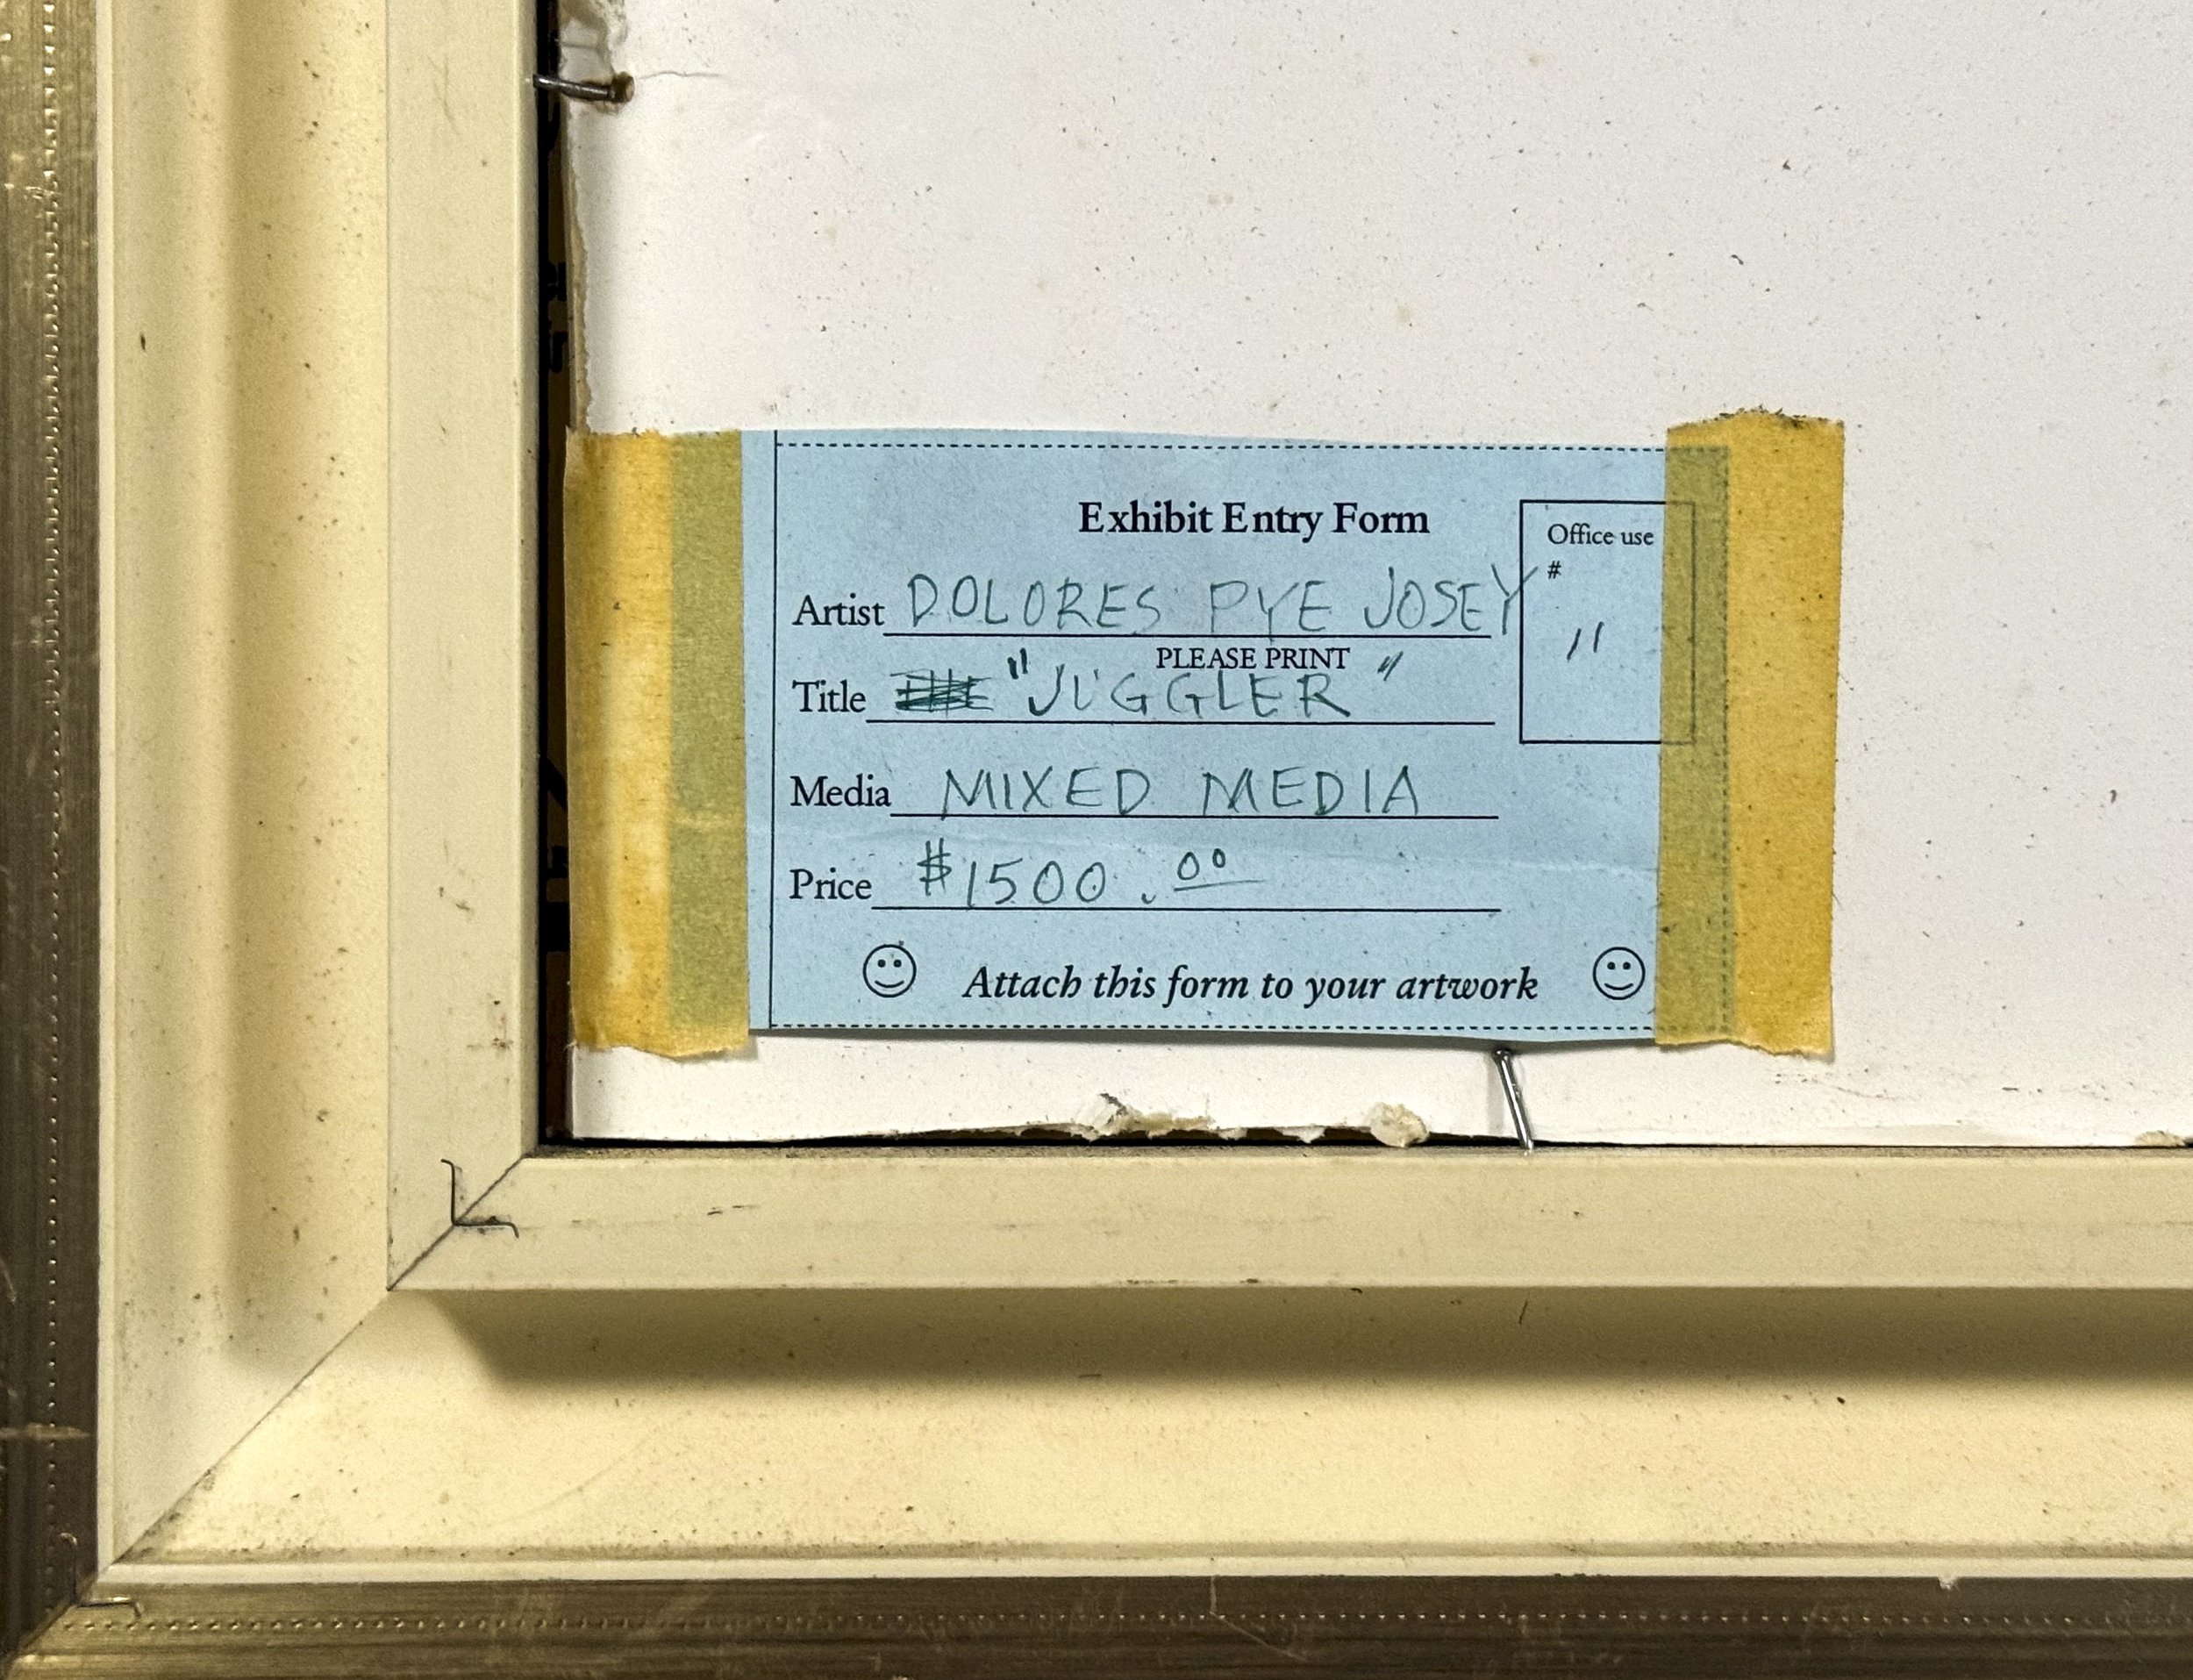 Exhibit Entry Form
Office use
#
11
Artist DOLORES PYE JOSEY
PLEASE PRINT
Title "JUGGLER"
Media MIXED MEDIA
Price $1500.00
Attach this form to your artwork